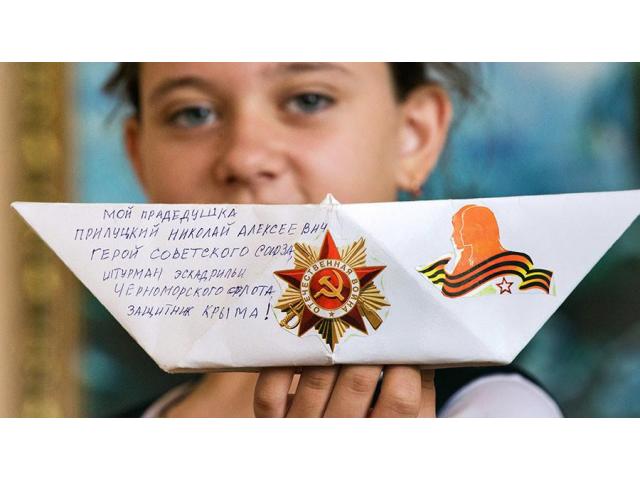 МОЙ ПРАДЕДУШКА
ПРИЛУЦКИЙ НИКОЛАЙ АЛЕКСЕЕВИЧ
ГЕРОЙ СОВЕТСКОГО СОЮЗА,
ШТУРМАН ЭСКАДРИЛЬИ
ЧЕРНОМОРСКОГО ФЛОТА
ЗАЩИТНИК КРЫМА!
ОТЕЧЕСТВЕННАЯ ВОЙНА